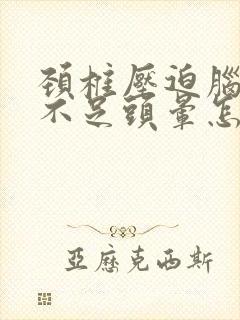 頚椎壓迫腦
不足頭暈怎
亞歷克西斯